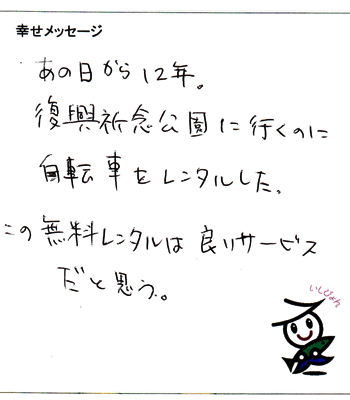 幸せメッセージ
あの日から12年。
復興祈念公園に行くのに
自転車をレンタルした。
この無料レンタルは良いサービス
だと思う。
いしぴょん